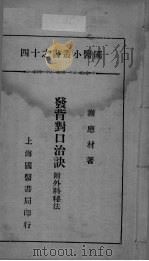 國醫小叢書之十四
謝應材著
發背對口治訣
附外科秘法
上海國醫書局印行